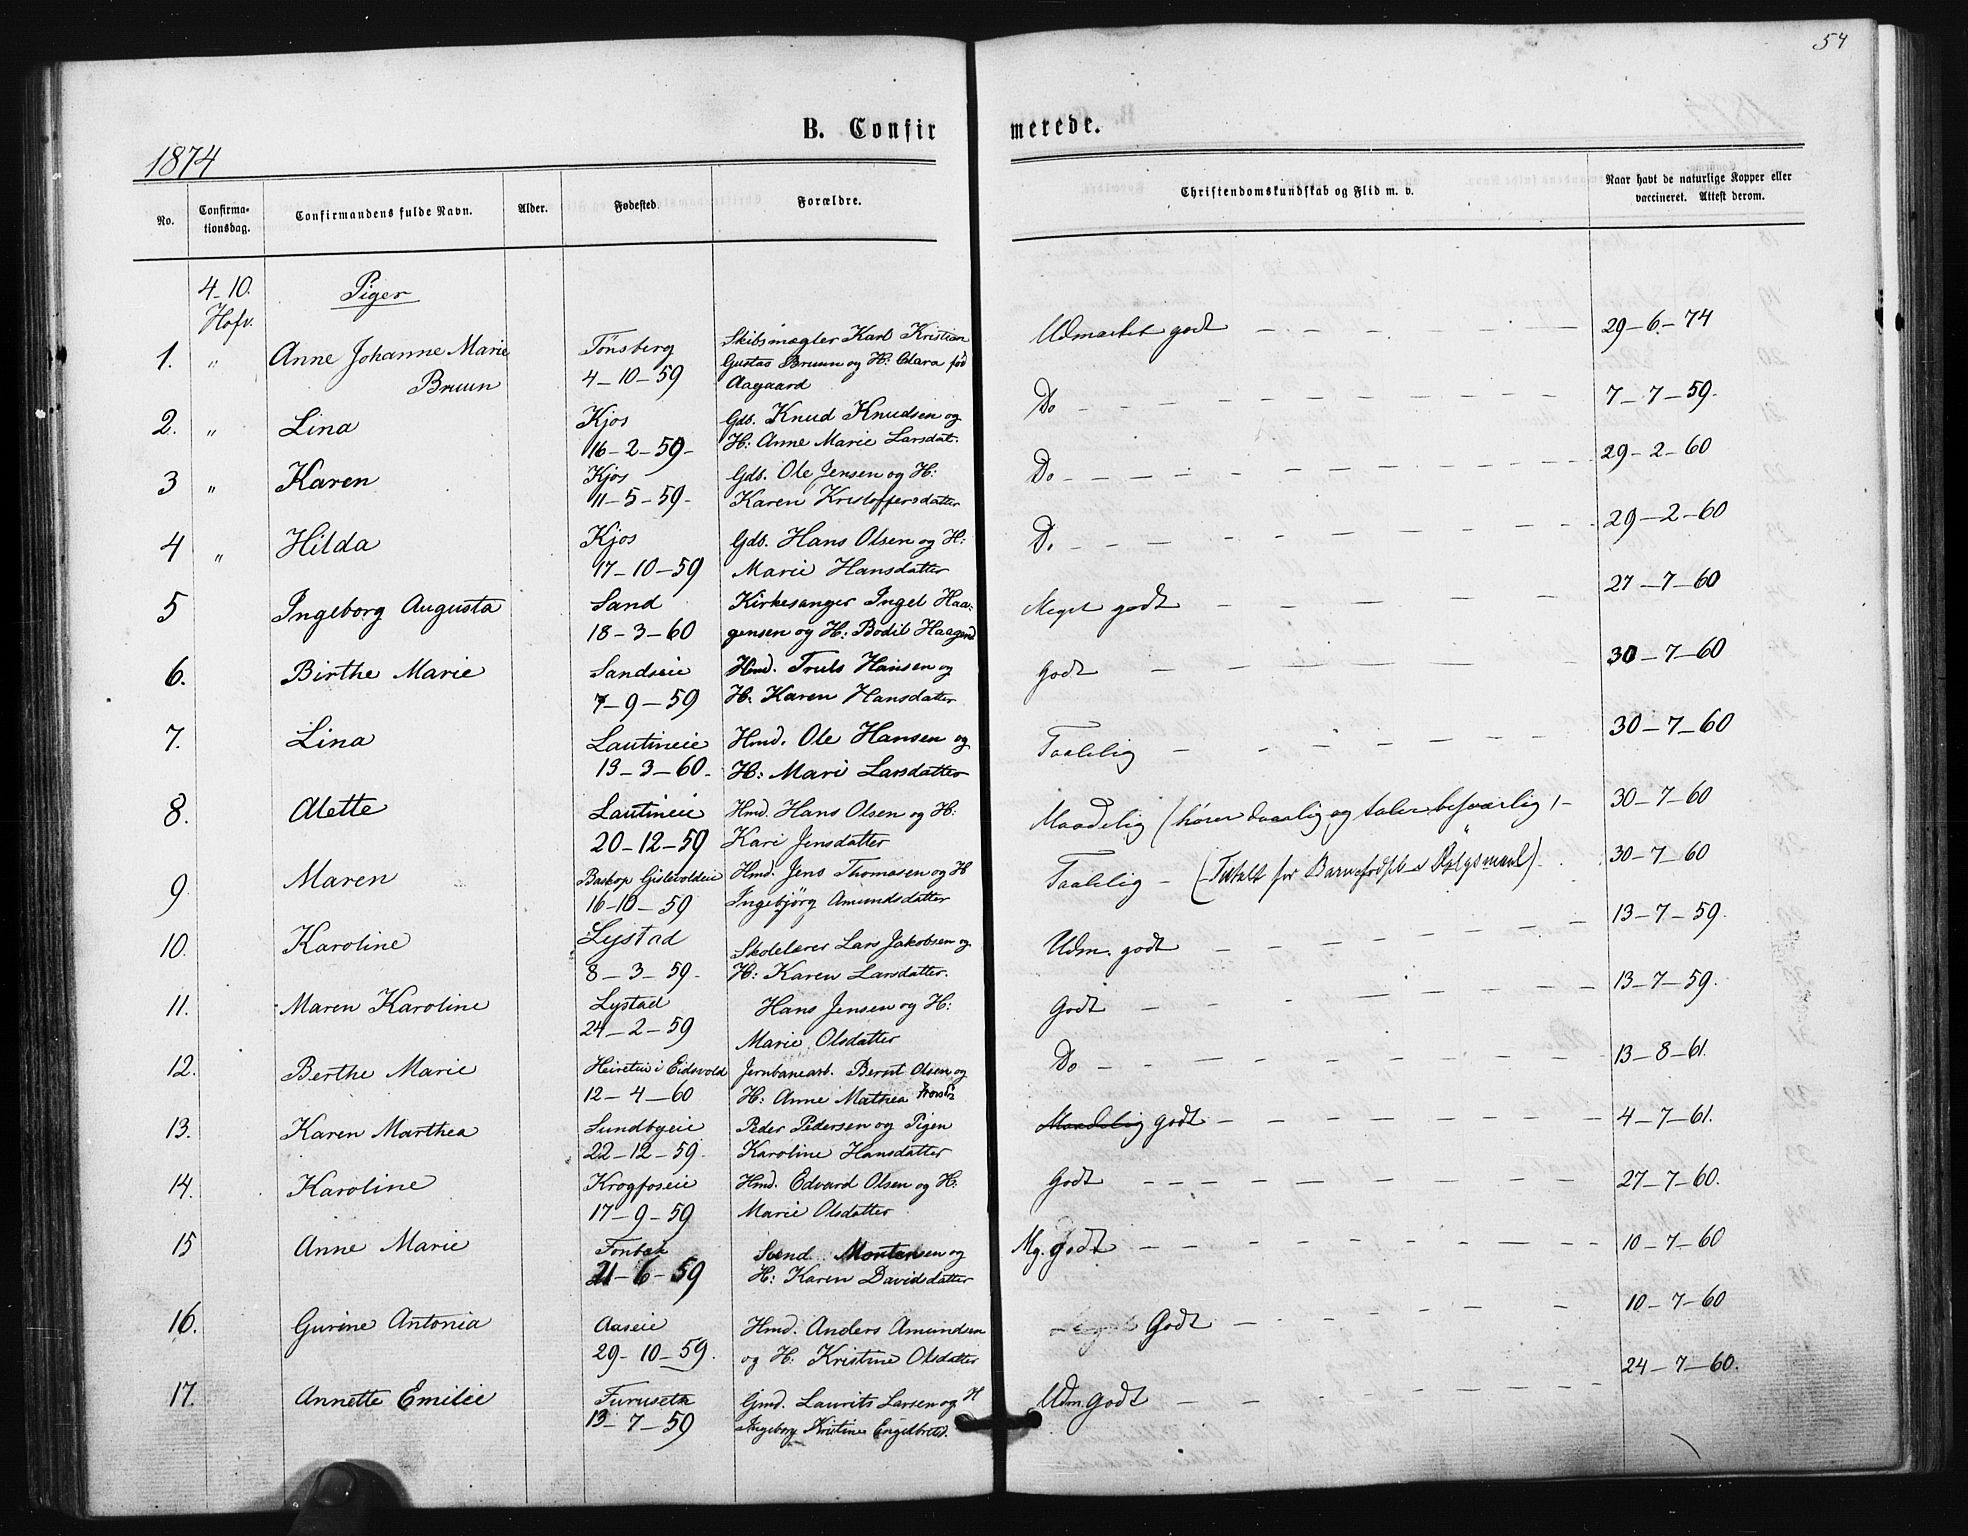 54
B. Confirmerede.
1874
No. Confirmationsdag. Confirmandens fulde Navn. Alder. Fødested. Forældre. Christendomskundskab og Flid m. v. Naar havt de naturlige Kopper eller vaccineret. Attest derom.
4-10. Hofv. Piger
1. " Anne Johanne Marie Bruun Tønsberg 4-10-59 Skibsmægler Karl Kristian Gustav Bruun og H: Clara fød Aagaard Udmærket godt — 29-6-74
2. " Lina Kjos 16-2-59- Gdb. Knud Knudsen og H: Anne Marie Larsdat: Do — 7-7-59.
3 " Karen Kjos 11-5-59- Gdb. Ole Jensen og H: Karen Kristoffersdatter Do — 29-2-60
4 " Hilda Kjos 17-10-59 Gdb. Hans Olsen og H: Marie Hansdatter Do — 29-2-60
5 Ingeborg Augusta Sand 18-3-60 Kirkesanger Ingel Haagensen og H: Bodil Haagend Meget godt — 27-7-60
6. Birthe Marie Sandseie 7-9-59 Hmd. Truls Hansen og H: Karen Hansdatter godt — 30-7-60
7. Lina Lautineie 13-3-60. Hmd. Ole Hansen og H: Mari Larsdatter Taalelig — 30-7-60
8. Alette Lautineie 20-12-59 Hmd. Hans Olsen og H: Kari Jensdatter Maadelig (hører daarlig og taler besværlig) - 30-7-60
9. Maren Baskop Gislevoldeie 16-10-59 Hmd. Jens Thomasen og H Ingebjörg Amundsdatter Taalelig - 30-7-60
10. Karoline Lystad 8-3-59. Skolelærer Lars Jakobsen og H: Karen Larsdatter. Udm. godt — 13-7-59.
11. Maren Karoline Lystad 24-2-59 Hans Jensen og H: Marie Olsdatter Godt — 13-7-59.
12. Berthe Marie i Eidsvold 12-4-60 Jernbanearb. Bernt Olsen og H: Anne Mathea Do — 13-8-61.
13. Karen Marthea Sundbyeie 22-12-59. Peder Pedersen og Pigen Karoline Hansdatter Maadelig godt — 4-7-61.
14. Karoline Krogfoseie 17-9-59 Hmd. Edvard Olsen og H: Marie Olsdatter Godt — 27-7-60.
15 Anne Marie Tonbak 21-6-59 Svend Mortensen og H: Karen Davidsdatter Mg. godt — 10-7-60
16. Gurine Antonia Aaseie 29-10-59. Hmd. Anders Amundsen og H: Kristine Olsdatter Godt — 10-7-60
17. Annette Emilie Furuseth 13-7-59 Gmd. Laurits Larsen og H Ingeborg Kristine Engelbretsd. Udm. godt — 24-7-60.